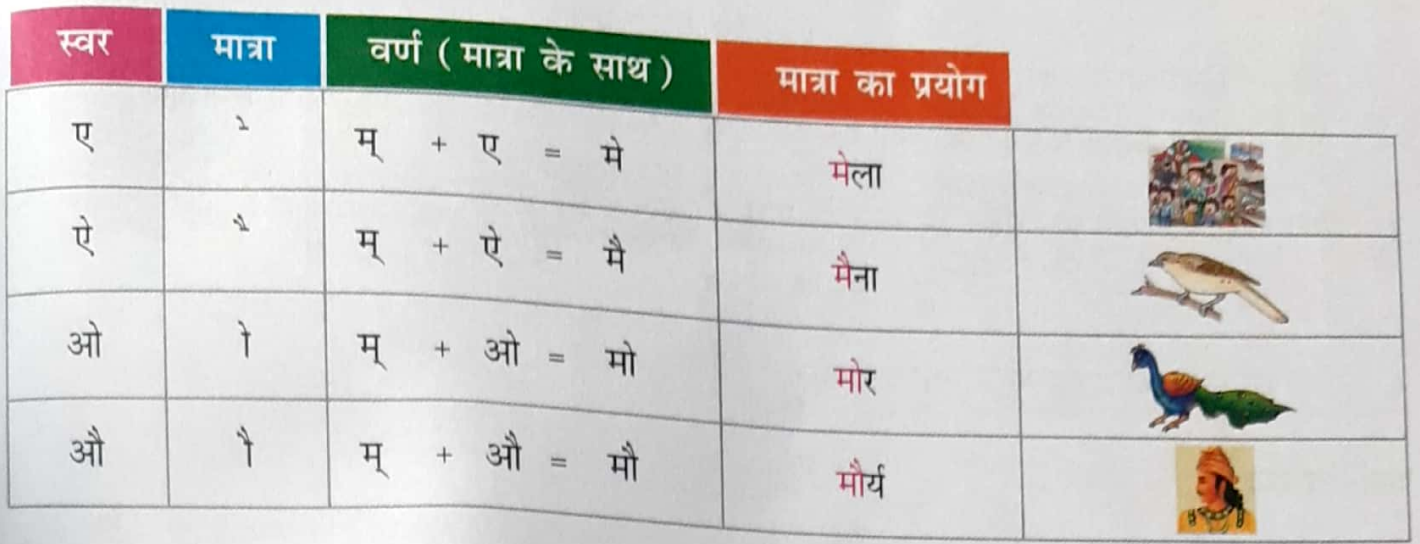 स्वर मात्रा वर्ण ( मात्रा के साथ ) मात्रा का प्रयोग
ए े म् + ए = मे मेला
ऐ ै म् + ऐ = मै मैना
ओ ो म् + ओ = मो मोर
औ ौ म् + औ = मौ मौर्य